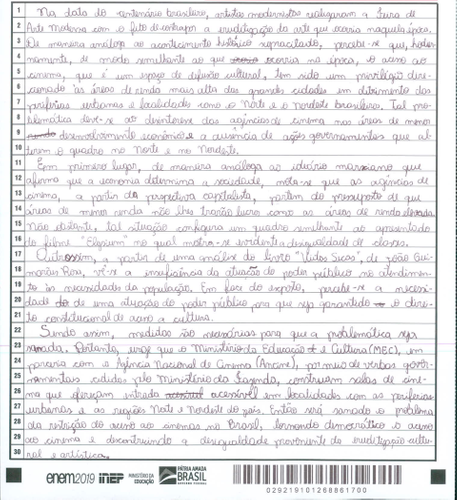 1 Na data do centenário brasileiro, artistas modernistas realizaram a Feira de
2 Arte Moderna com o fito de contrapor a eruditização da arte que ocorria naquela época.
3 De maneira análoga ao acontecimento histórico supracitado, percebe-se que, hodier-
4 namente, de modo semelhante ao que ocorria na época, o acesso ao
5 cinema, que é um espaço de difusão cultural, tem sido um privilégio dire-
6 cionado às áreas de renda mais alta das grandes cidades em detrimento das
7 periferias urbanas e localidades como o Norte e o Nordeste brasileiro. Tal pro-
8 blemática deve-se ao desinteresse das agências de cinema nas áreas de menor
9 desenvolvimento econômico e a ausência de ações governamentais que al-
10 terem o quadro no Norte e no Nordeste.
11 Em primeiro lugar, de maneira análoga ao ideário marxiano que
12 afirma que a economia determina a sociedade, nota-se que as agências de
13 cinema, a partir da perspectiva capitalista, partem do pressuposto de que
14 áreas de menor renda não lhes trarão lucro como as áreas de renda elevada.
15 Não obstante, tal situação configura um quadro semelhante ao apresentado
16 do filme "Elysium" no qual mostra-se evidente a desigualdade de classes.
17 Outrossim, a partir de uma análise do livro "Vidas Secas", de João Gui-
18 marães Rosa, vê-se a insuficiência da atuação do poder público no atendimen-
19 to às necessidades da população. Em face do exposto, percebe-se a necessi-
20 dade de uma atuação do poder público para que seja garantido o direi-
21 to constitucional de acesso a cultura.
22 Sendo assim, medidas são necessárias para que a problemática seja
23 sanada. Portanto, urge que o Ministério da Educação e Cultura (MEC), em
24 parceria com a Agência Nacional de Cinema (Ancine), por meio de verbas gover-
25 namentais cedidas pelo Ministério da Fazenda, construam salas de cine-
26 ma que ofereçam entrada acessível em localidades com as periferias
27 urbanas e as regiões Norte e Nordeste do país. Então será sanado o problema
28 da restrição do acesso aos cinemas no Brasil, tornando democrático o acesso
29 ao cinema e descontruindo a desigualdade proveniente da eruditização cultu-
30 ral e artística.
enem2019 INEP MINISTÉRIO DA EDUCAÇÃO PÁTRIA AMADA BRASIL GOVERNO FEDERAL
029219101268861700